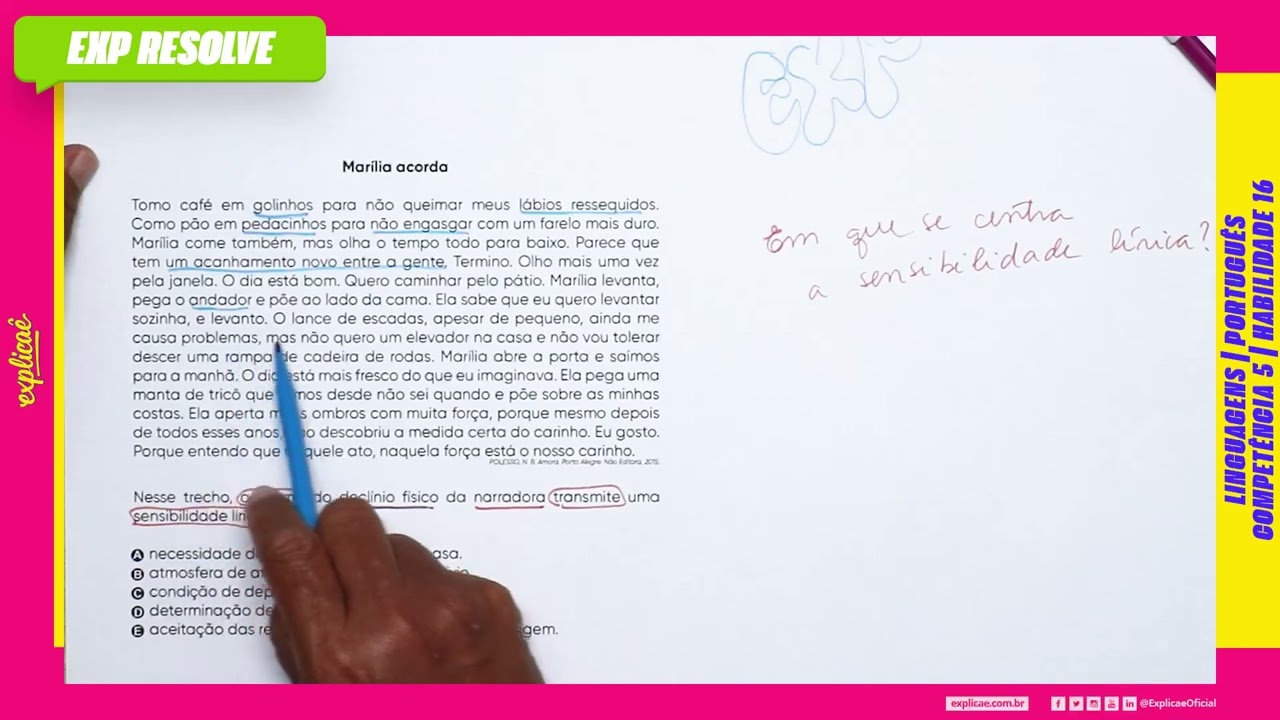 EXP RESOLVE
Marília acorda
Tomo café em golinhos para não queimar meus lábios ressequidos.
Como pão em pedacinhos para não engasgar com um farelo mais duro.
Marília come também, mas olha o tempo todo para baixo. Parece que
tem um acanhamento novo entre a gente. Termino. Olho mais uma vez
pela janela. O dia está bom. Quero caminhar pelo pátio. Marília levanta,
pega o andador e põe ao lado da cama. Ela sabe que eu quero levantar
sozinha, e levanto. O lance de escadas, apesar de pequeno, ainda me
causa problemas, mas não quero um elevador na casa e não vou tolerar
descer uma rampa de cadeira de rodas. Marília abre a porta e saímos
para a manhã. O dia está mais fresco do que eu imaginava. Ela pega uma
manta de tricô que mos desde não sei quando e põe sobre as minhas
costas. Ela aperta m s ombros com muita força, porque mesmo depois
de todos esses anos, o descobriu a medida certa do carinho. Eu gosto.
Porque entendo que quele ato, naquela força está o nosso carinho.
POLESSO, N. B. Amora. Porto Alegre: Não Editora, 2015.
Nesse trecho, o do declínio físico da narradora transmite uma
sensibilidade lír
A necessidade d asa.
B atmosfera de a
C condição de dep
D determinação de
E aceitação das re gem.
EXP
Em que se centra
a sensibilidade lírica?
explicaê
LINGUAGENS | PORTUGUÊS
COMPETÊNCIA 5 | HABILIDADE 16
explicae.com.br
@ExplicaeOficial